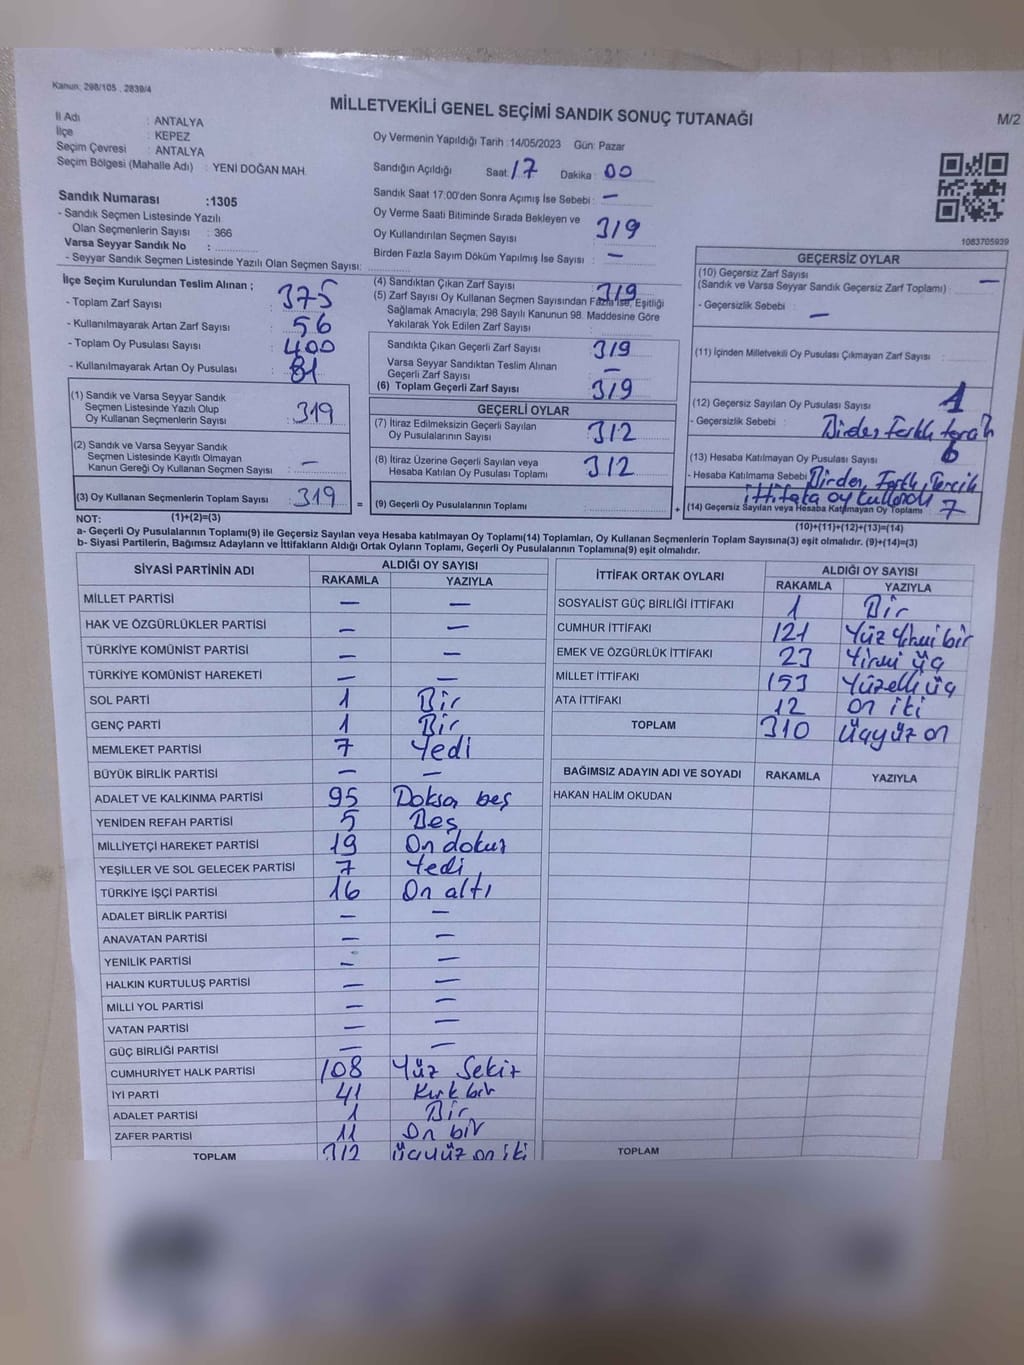 Kanun: 298/105 . 2839/4
MİLLETVEKİLİ GENEL SEÇİMİ SANDIK SONUÇ TUTANAĞI
M/2
İl Adı : ANTALYA
İlçe : KEPEZ
Seçim Çevresi : ANTALYA
Seçim Bölgesi (Mahalle Adı) : YENİ DOĞAN MAH.
Sandık Numarası :1305
- Sandık Seçmen Listesinde Yazılı
Olan Seçmenlerin Sayısı : 366
Varsa Seyyar Sandık No :
- Seyyar Sandık Seçmen Listesinde Yazılı Olan Seçmen Sayısı:
Oy Vermenin Yapıldığı Tarih :14/05/2023 Gün: Pazar
Sandığın Açıldığı Saat: 17 Dakika : 00
Sandık Saat 17:00'den Sonra Açımış İse Sebebi : —
Oy Verme Saati Bitiminde Sırada Bekleyen ve
Oy Kullandırılan Seçmen Sayısı : 319
Birden Fazla Sayım Döküm Yapılmış İse Sayısı : —
1083705939
İlçe Seçim Kurulundan Teslim Alınan ;
- Toplam Zarf Sayısı : 375
- Kullanılmayarak Artan Zarf Sayısı : 56
- Toplam Oy Pusulası Sayısı : 400
- Kullanılmayarak Artan Oy Pusulası : 81
(1) Sandık ve Varsa Seyyar Sandık
Seçmen Listesinde Yazılı Olup
Oy Kullanan Seçmenlerin Sayısı : 319
(2) Sandık ve Varsa Seyyar Sandık
Seçmen Listesinde Kayıtlı Olmayan
Kanun Gereği Oy Kullanan Seçmen Sayısı : —
(3) Oy Kullanan Seçmenlerin Toplam Sayısı : 319
(1)+(2)=(3)
(4) Sandıktan Çıkan Zarf Sayısı : 319
(5) Zarf Sayısı Oy Kullanan Seçmen Sayısından Fazla ise, Eşitliği
Sağlamak Amacıyla; 298 Sayılı Kanunun 98. Maddesine Göre
Yakılarak Yok Edilen Zarf Sayısı :
Sandıkta Çıkan Geçerli Zarf Sayısı : 319
Varsa Seyyar Sandıktan Teslim Alınan
Geçerli Zarf Sayısı : —
(6) Toplam Geçerli Zarf Sayısı : 319
GEÇERLİ OYLAR
(7) İtiraz Edilmeksizin Geçerli Sayılan
Oy Pusulalarının Sayısı : 312
(8) İtiraz Üzerine Geçerli Sayılan veya
Hesaba Katılan Oy Pusulası Toplamı : 312
= (9) Geçerli Oy Pusulalarının Toplamı :
GEÇERSİZ OYLAR
(10) Geçersiz Zarf Sayısı
(Sandık ve Varsa Seyyar Sandık Geçersiz Zarf Toplamı) : —
- Geçersizlik Sebebi : —
(11) İçinden Milletvekili Oy Pusulası Çıkmayan Zarf Sayısı :
(12) Geçersiz Sayılan Oy Pusulası Sayısı : 1
- Geçersizlik Sebebi : Birden Farklı
(13) Hesaba Katılmayan Oy Pusulası Sayısı : 6
- Hesaba Katılmama Sebebi : Birden, Farklı, Tercih
İttifaka oy kullandı
+ (14) Geçersiz Sayılan veya Hesaba Katılmayan Oy Toplamı : 7
(10)+(11)+(12)+(13)=(14)
NOT:
a- Geçerli Oy Pusulalarının Toplamı(9) ile Geçersiz Sayılan veya Hesaba katılmayan Oy Toplamı(14) Toplamları, Oy Kullanan Seçmenlerin Toplam Sayısına(3) eşit olmalıdır. (9)+(14)=(3)
b- Siyasi Partilerin, Bağımsız Adayların ve İttifakların Aldığı Ortak Oyların Toplamı, Geçerli Oy Pusulalarının Toplamına(9) eşit olmalıdır.
SİYASİ PARTİNİN ADI ALDIĞI OY SAYISI
RAKAMLA YAZIYLA
MİLLET PARTİSİ — —
HAK VE ÖZGÜRLÜKLER PARTİSİ — —
TÜRKİYE KOMÜNİST PARTİSİ — —
TÜRKİYE KOMÜNİST HAREKETİ — —
SOL PARTİ 1 Bir
GENÇ PARTİ 1 Bir
MEMLEKET PARTİSİ 7 Yedi
BÜYÜK BİRLİK PARTİSİ — —
ADALET VE KALKINMA PARTİSİ 95 Doksan beş
YENİDEN REFAH PARTİSİ 5 Beş
MİLLİYETÇİ HAREKET PARTİSİ 19 On dokuz
YEŞİLLER VE SOL GELECEK PARTİSİ 7 Yedi
TÜRKİYE İŞÇİ PARTİSİ 16 On altı
ADALET BİRLİK PARTİSİ — —
ANAVATAN PARTİSİ — —
YENİLİK PARTİSİ — —
HALKIN KURTULUŞ PARTİSİ — —
MİLLİ YOL PARTİSİ — —
VATAN PARTİSİ — —
GÜÇ BİRLİĞİ PARTİSİ — —
CUMHURİYET HALK PARTİSİ 108 Yüz Sekiz
İYİ PARTİ 41 Kırk bir
ADALET PARTİSİ 1 Bir
ZAFER PARTİSİ 11 On bir
TOPLAM 312 üçyüz on iki
İTTİFAK ORTAK OYLARI ALDIĞI OY SAYISI
RAKAMLA YAZIYLA
SOSYALİST GÜÇ BİRLİĞİ İTTİFAKI 1 Bir
CUMHUR İTTİFAKI 121 Yüz Yirmi bir
EMEK VE ÖZGÜRLÜK İTTİFAKI 23 Yirmi üç
MİLLET İTTİFAKI 153 Yüzelli üç
ATA İTTİFAKI 12 on iki
TOPLAM 310 Üçyüz on
BAĞIMSIZ ADAYIN ADI VE SOYADI RAKAMLA YAZIYLA
HAKAN HALİM OKUDAN
TOPLAM